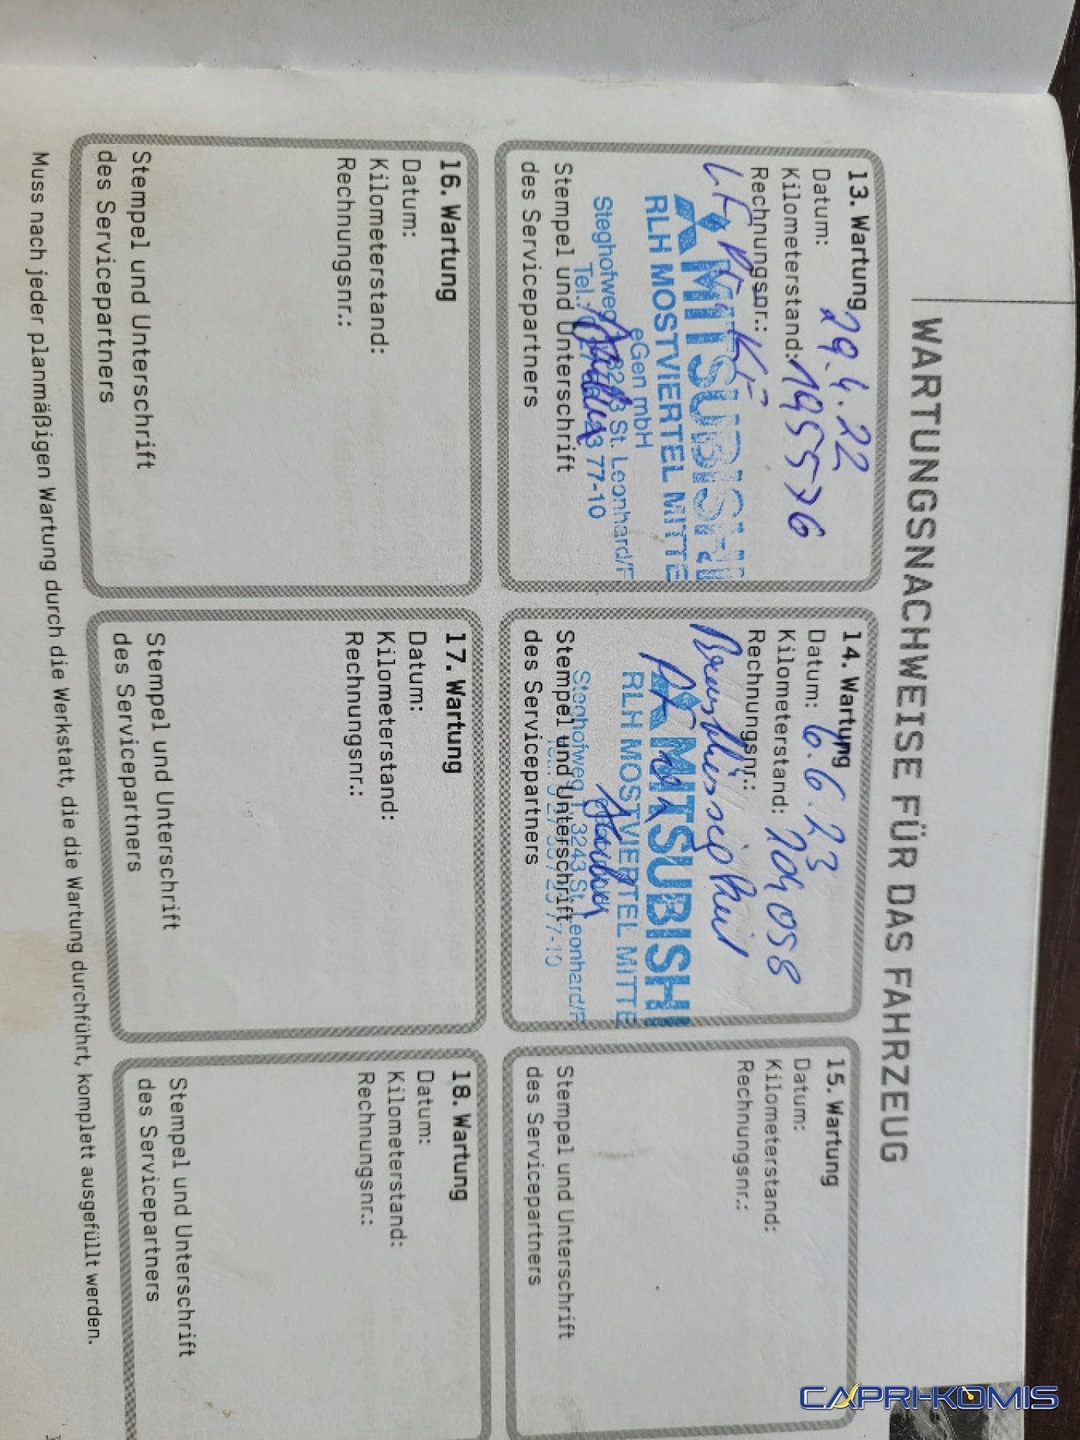 WARTUNGSNACHWEISE FÜR DAS FAHRZEUG
13. Wartung
Datum: 29.4.22
Kilometerstand: 195576
Rechnungsnr.:
MITSUBISHI
RLH MOSTVIERTEL MITTE
eGen mbH
Steghofweg 1, 3243 St. Leonhard/F
Tel.: 77-10
Stempel und Unterschrift
des Servicepartners
14. Wartung
Datum: 6.6.23
Kilometerstand: 204058
Rechnungsnr.:
Bremsflüssigkeit
MITSUBISHI
RLH MOSTVIERTEL MITTE
Steghofweg 1, 3243 St. Leonhard/F
77-10
Stempel und Unterschrift
des Servicepartners
15. Wartung
Datum:
Kilometerstand:
Rechnungsnr.:
Stempel und Unterschrift
des Servicepartners
16. Wartung
Datum:
Kilometerstand:
Rechnungsnr.:
Stempel und Unterschrift
des Servicepartners
17. Wartung
Datum:
Kilometerstand:
Rechnungsnr.:
Stempel und Unterschrift
des Servicepartners
18. Wartung
Datum:
Kilometerstand:
Rechnungsnr.:
Stempel und Unterschrift
des Servicepartners
Muss nach jeder planmäßigen Wartung durch die Werkstatt, die die Wartung durchführt, komplett ausgefüllt werden.
CAPRI-KOMIS